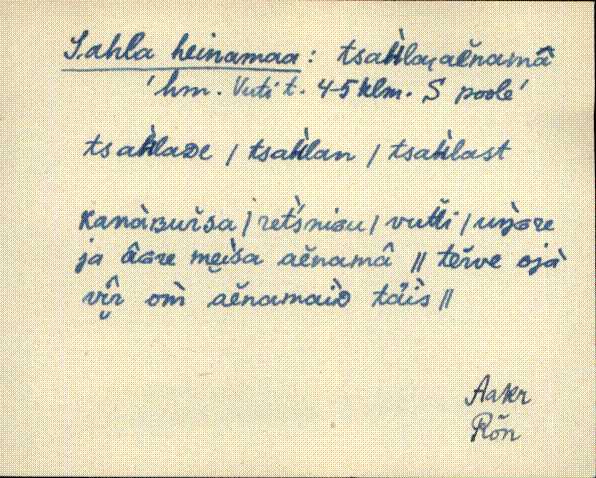 Sahla heinamaa: tsaH̀la, aĕnamâ
'hm. Vuti t. 4-5 klm. S poole'
tsaH̀laDe / tsaH̀lan / tsaH̀last
kanàʙuŕsa / ret's̀niɢu / vuťťi / uŋ̀ɢre
ja âɢre mei̯s̀a aĕnamâ // terve ojà
vî̮r om̀ aĕnamaiD täi̇̀s //
Aakr
Rõn